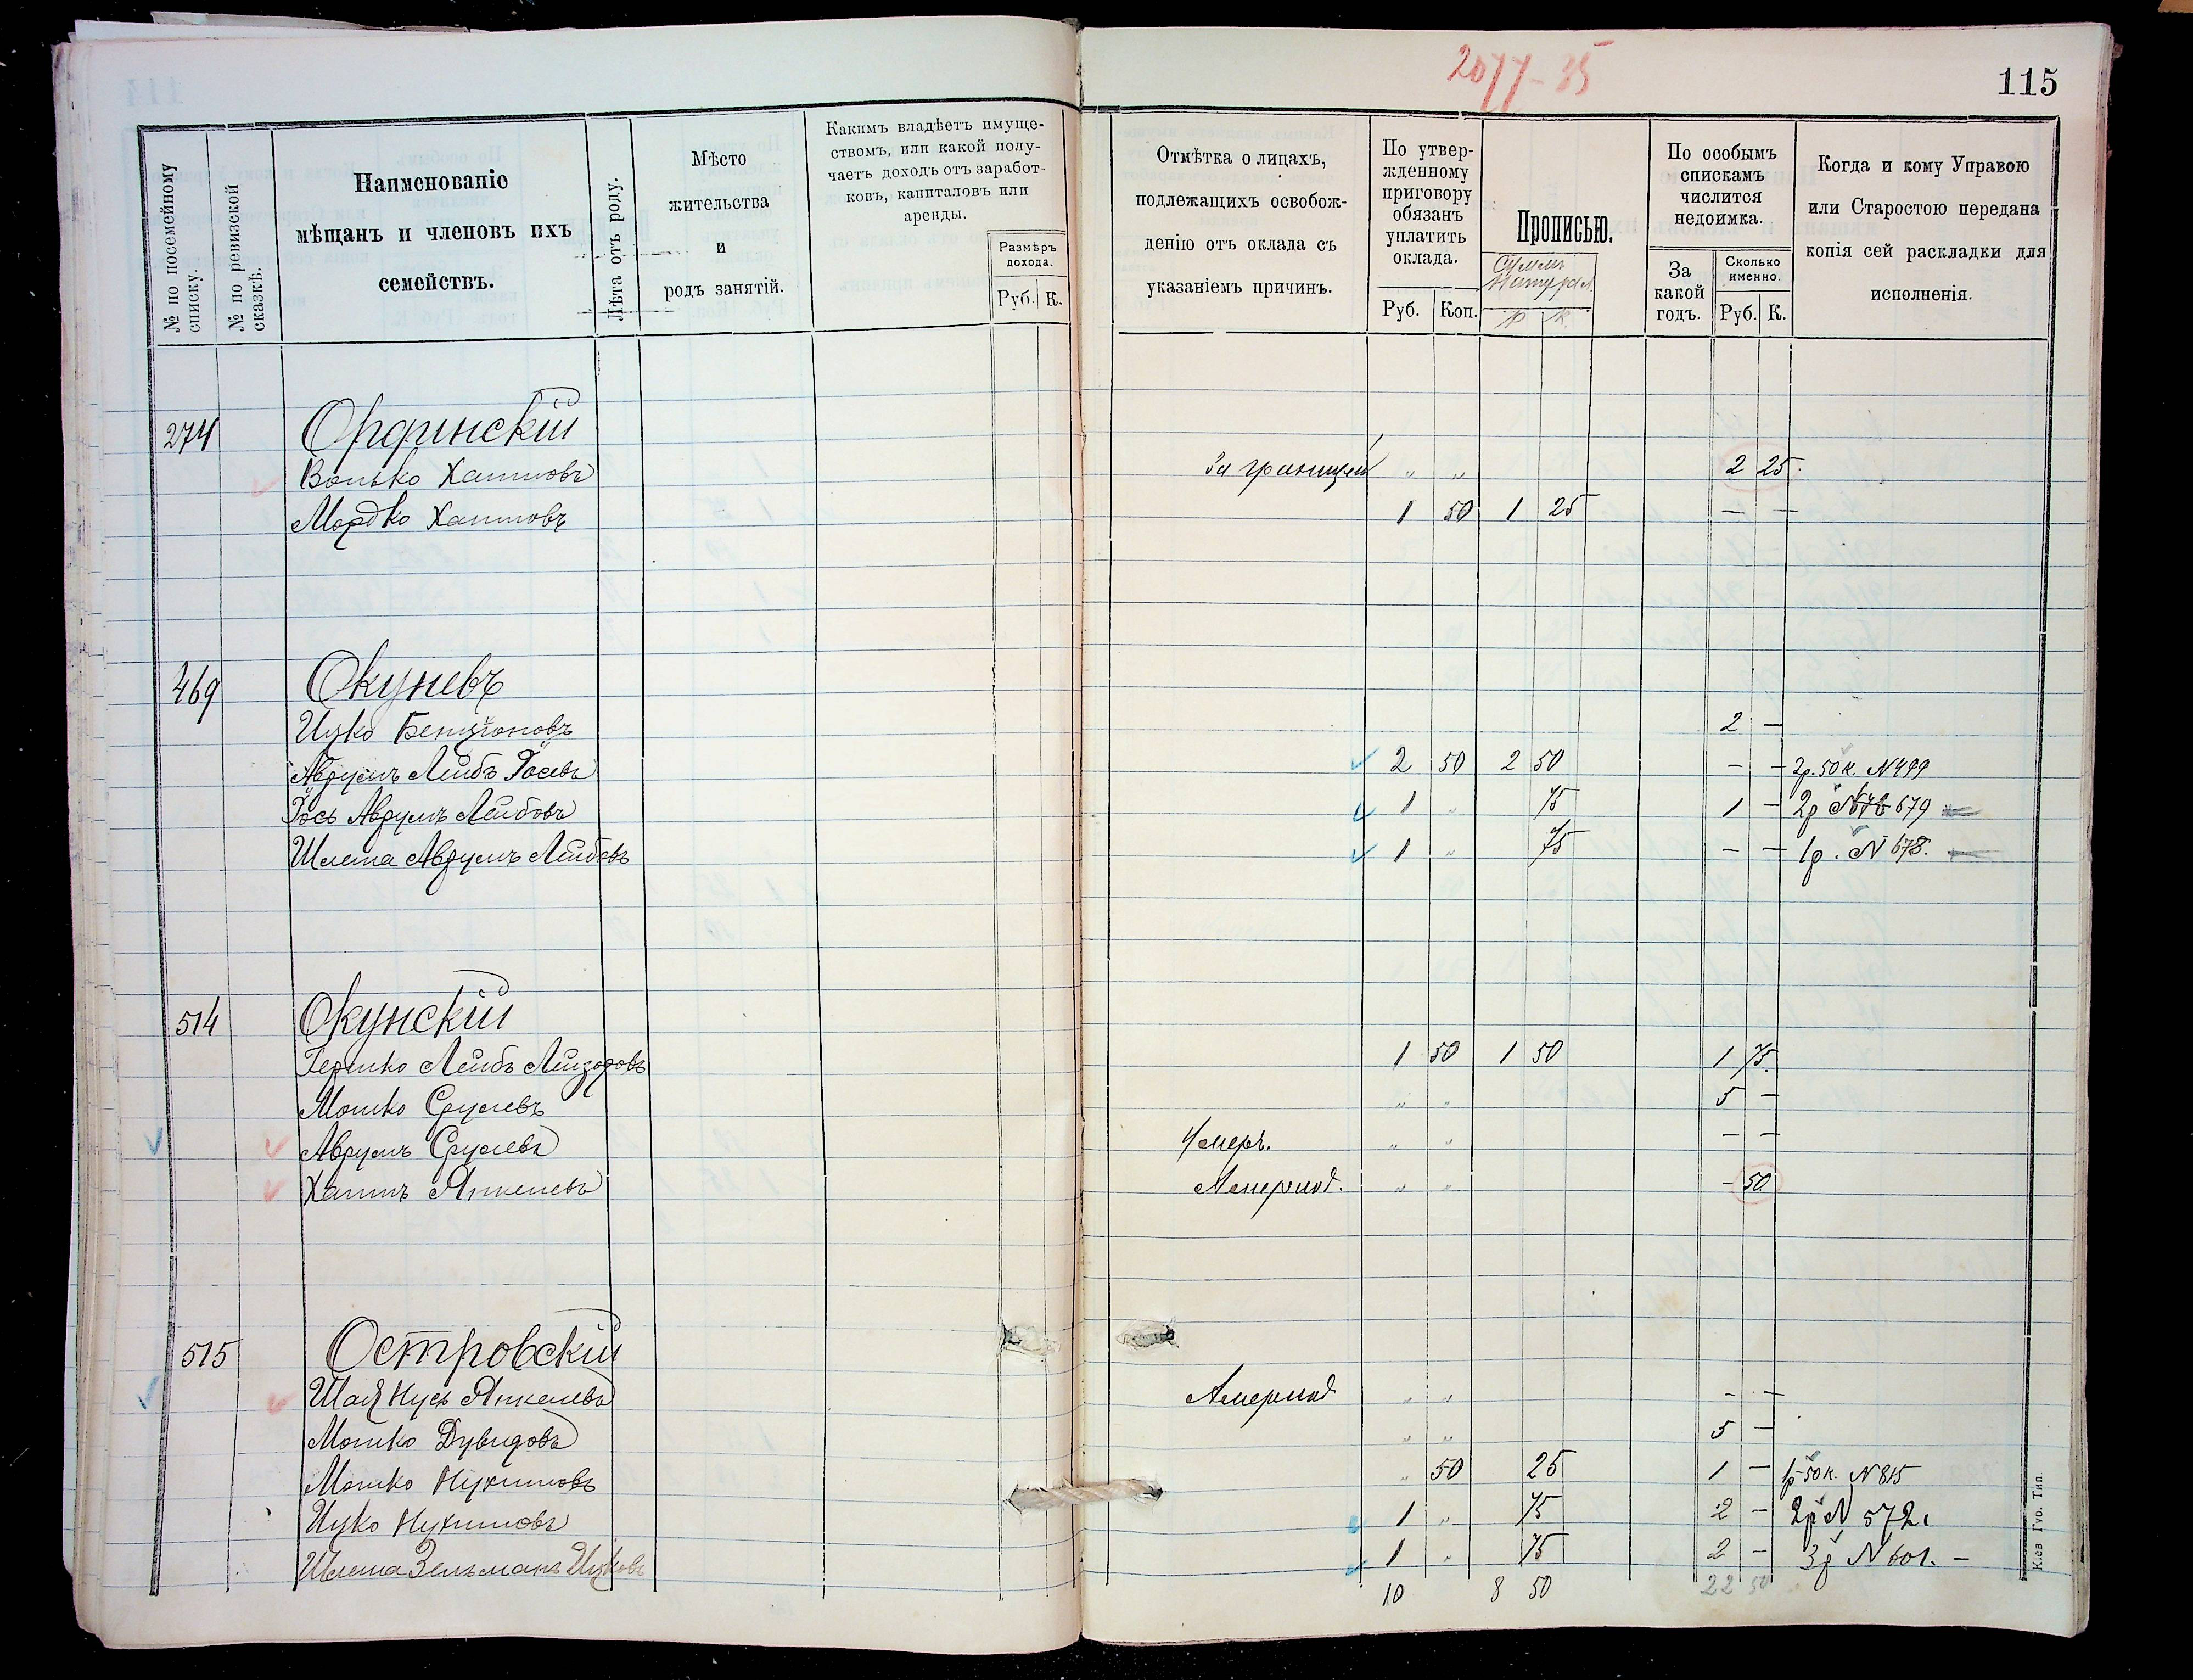 2077-35
115
№ по посемейному списку.
№ по ревизской сказкѣ.
Наименованіе мѣщанъ и членовъ ихъ семействъ.
Лѣта отъ роду.
Мѣсто жительства и родъ занятій.
Какимъ владѣетъ имуществомъ, или какой получаетъ доходъ отъ заработковъ, капиталовъ или аренды.
Размѣръ дохода.
Руб. К.
Отмѣтка о лицахъ, подлежащихъ освобожденію отъ оклада съ указаніемъ причинъ.
По утвержденному приговору обязанъ уплатить оклада.
Руб. Коп.
Прописью.
р к
По особымъ спискамъ числится недоимка.
За какой годъ.
Сколько именно.
Руб. К.
Когда и кому Управою или Старостою передана копія сей раскладки для исполненія.
274 Ординскій
Волько Хаимовъ За границей " " 2 25
Мордко Хаимовъ 1 50 1 25 — —
469 Окуневъ
Ицко Бенціоновъ 2 —
Аврумъ Лейбъ Іосевъ 2 50 2 50 — — 2р. 50к. N499
Іось Аврумъ Лейбовъ 1 " 75 1 — 2р N 679
Шлема Аврумъ Лейбовъ 1 " 75 — — 1р. N 678.
514 Окунскій
Гершко Лейбъ Лейзоровъ 1 50 1 50 1 75
Мошко Срулевъ " " 5 —
Аврумъ Срулевъ Умеръ. " " — —
Хаимъ Янкелевъ Америкѣ. " " — 50
515 Островскій
Шая Нусъ Янкелевъ Америкѣ " " — —
Мошко Дувидовъ " " 5 —
Мошко Нухимовъ " 50 25 1 — 1р-50к. N815
Ицко Нухимовъ 1 " 75 2 — 2р N 572.
Шлема Зельманъ Ицковъ 1 " 75 2 — 3р N 601. —
10 8 50 22 50
Тип.